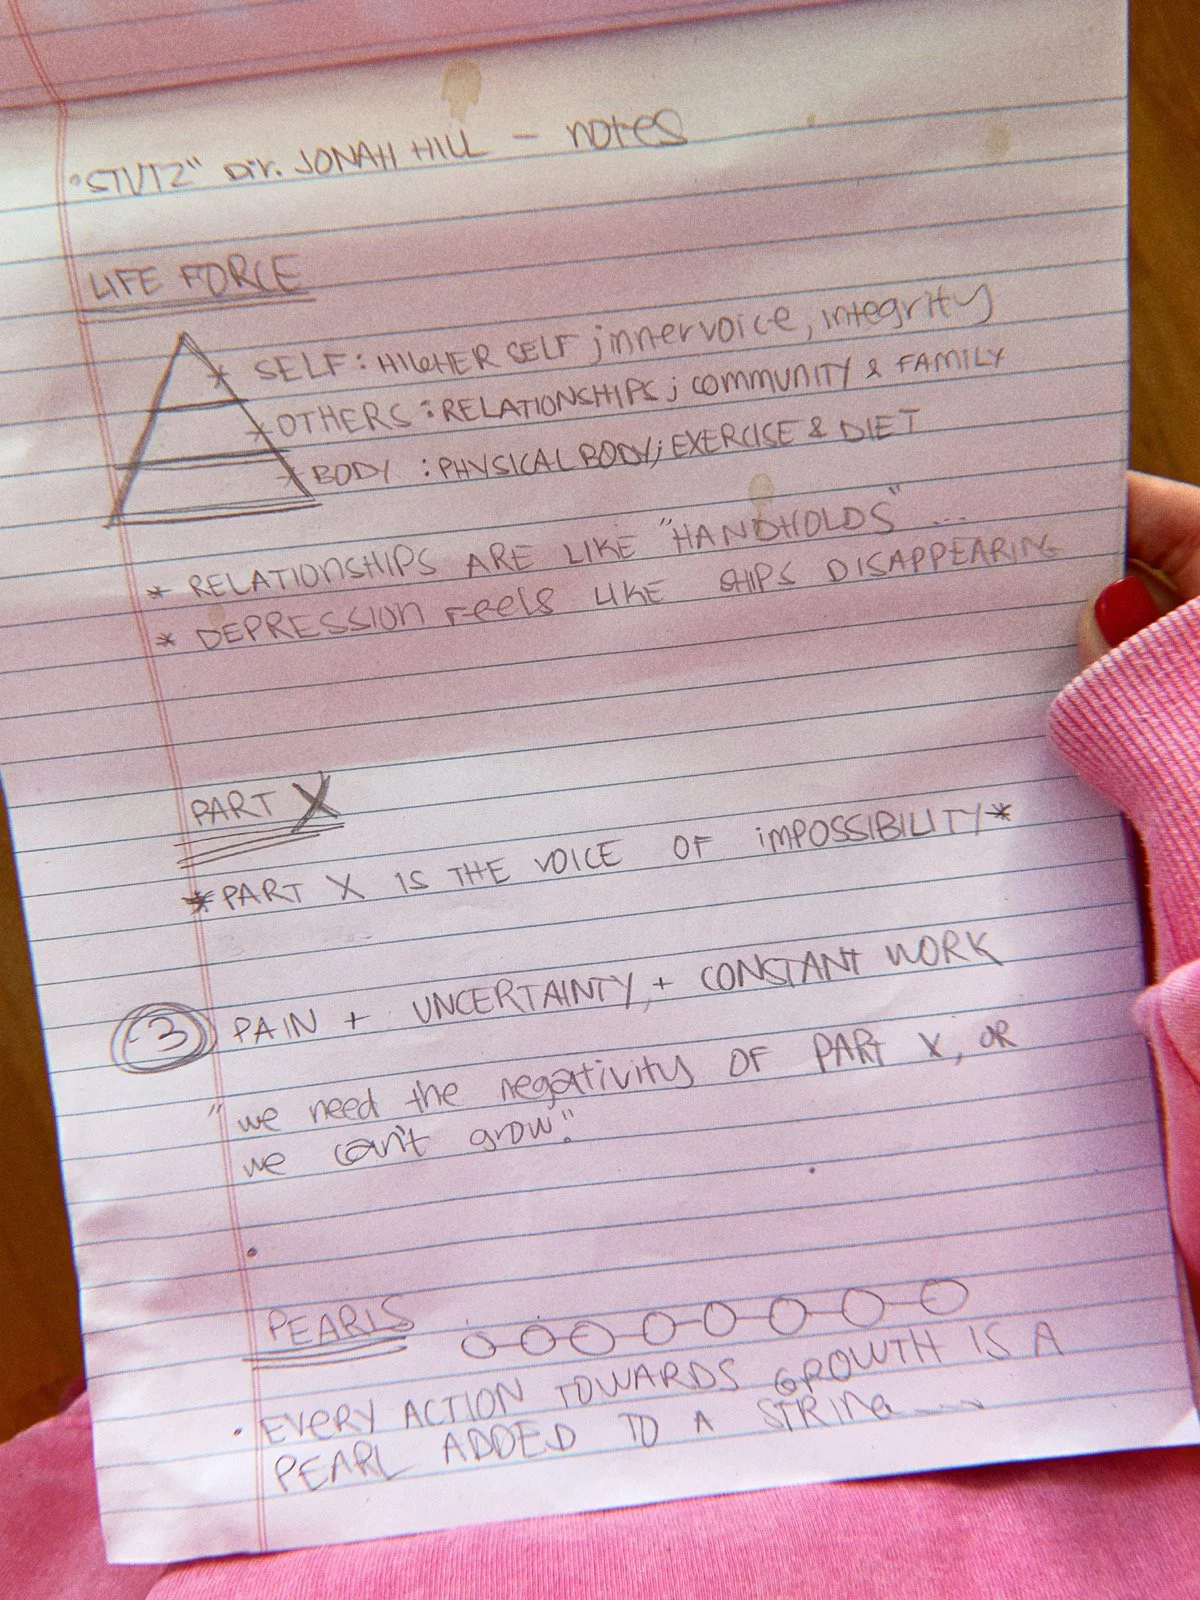 "STUTZ" Dir. JONAH HILL – notes
LIFE FORCE
SELF: HIGHER SELF ; inner voice, integrity
OTHERS : RELATIONSHIPS ; COMMUNITY & FAMILY
BODY : PHYSICAL BODY; EXERCISE & DIET
* RELATIONSHIPS ARE LIKE "HANDHOLDS" ...
* DEPRESSION FEELS LIKE SHIPS DISAPPEARING
PART X
*PART X IS THE VOICE OF IMPOSSIBILITY*
3 PAIN + UNCERTAINTY, + CONSTANT WORK
"we need the negativity OF PART X, OR
we can't grow."
PEARLS
• EVERY ACTION TOWARDS GROWTH IS A
PEARL ADDED TO A STRING....